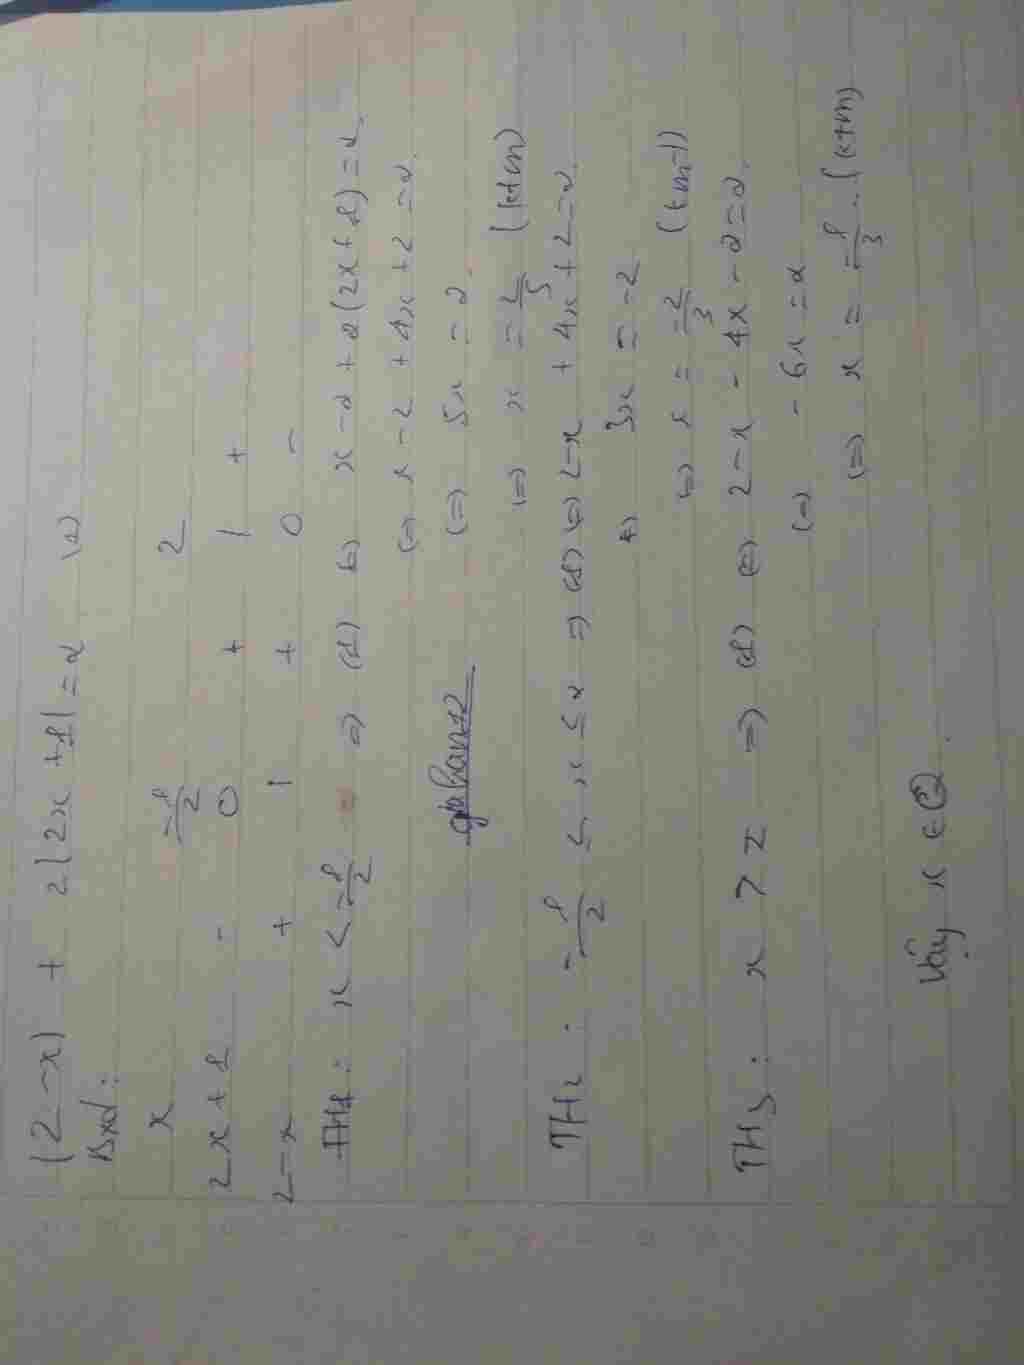 |2-x| + 2|2x+1| = 2 (1)
Bxd:
x -1/2 2
2x+1 - 0 + | +
2-x + | + 0 -
TH1: x < -1/2 => (1) <=> x-2+2(2x+1)=2
<=> x-2+4x+2=2
<=> 5x=2
<=> x=2/5 (ktm)
TH2: -1/2 ≤ x ≤ 2 => (1) <=> 2-x+4x+2=2
<=> 3x=-2
<=> x=-2/3 (tm)
TH3: x > 2 => (1) <=> 2-x-4x-2=2
<=> -6x=2
<=> x=-1/3 (ktm)
Vậy x ∈